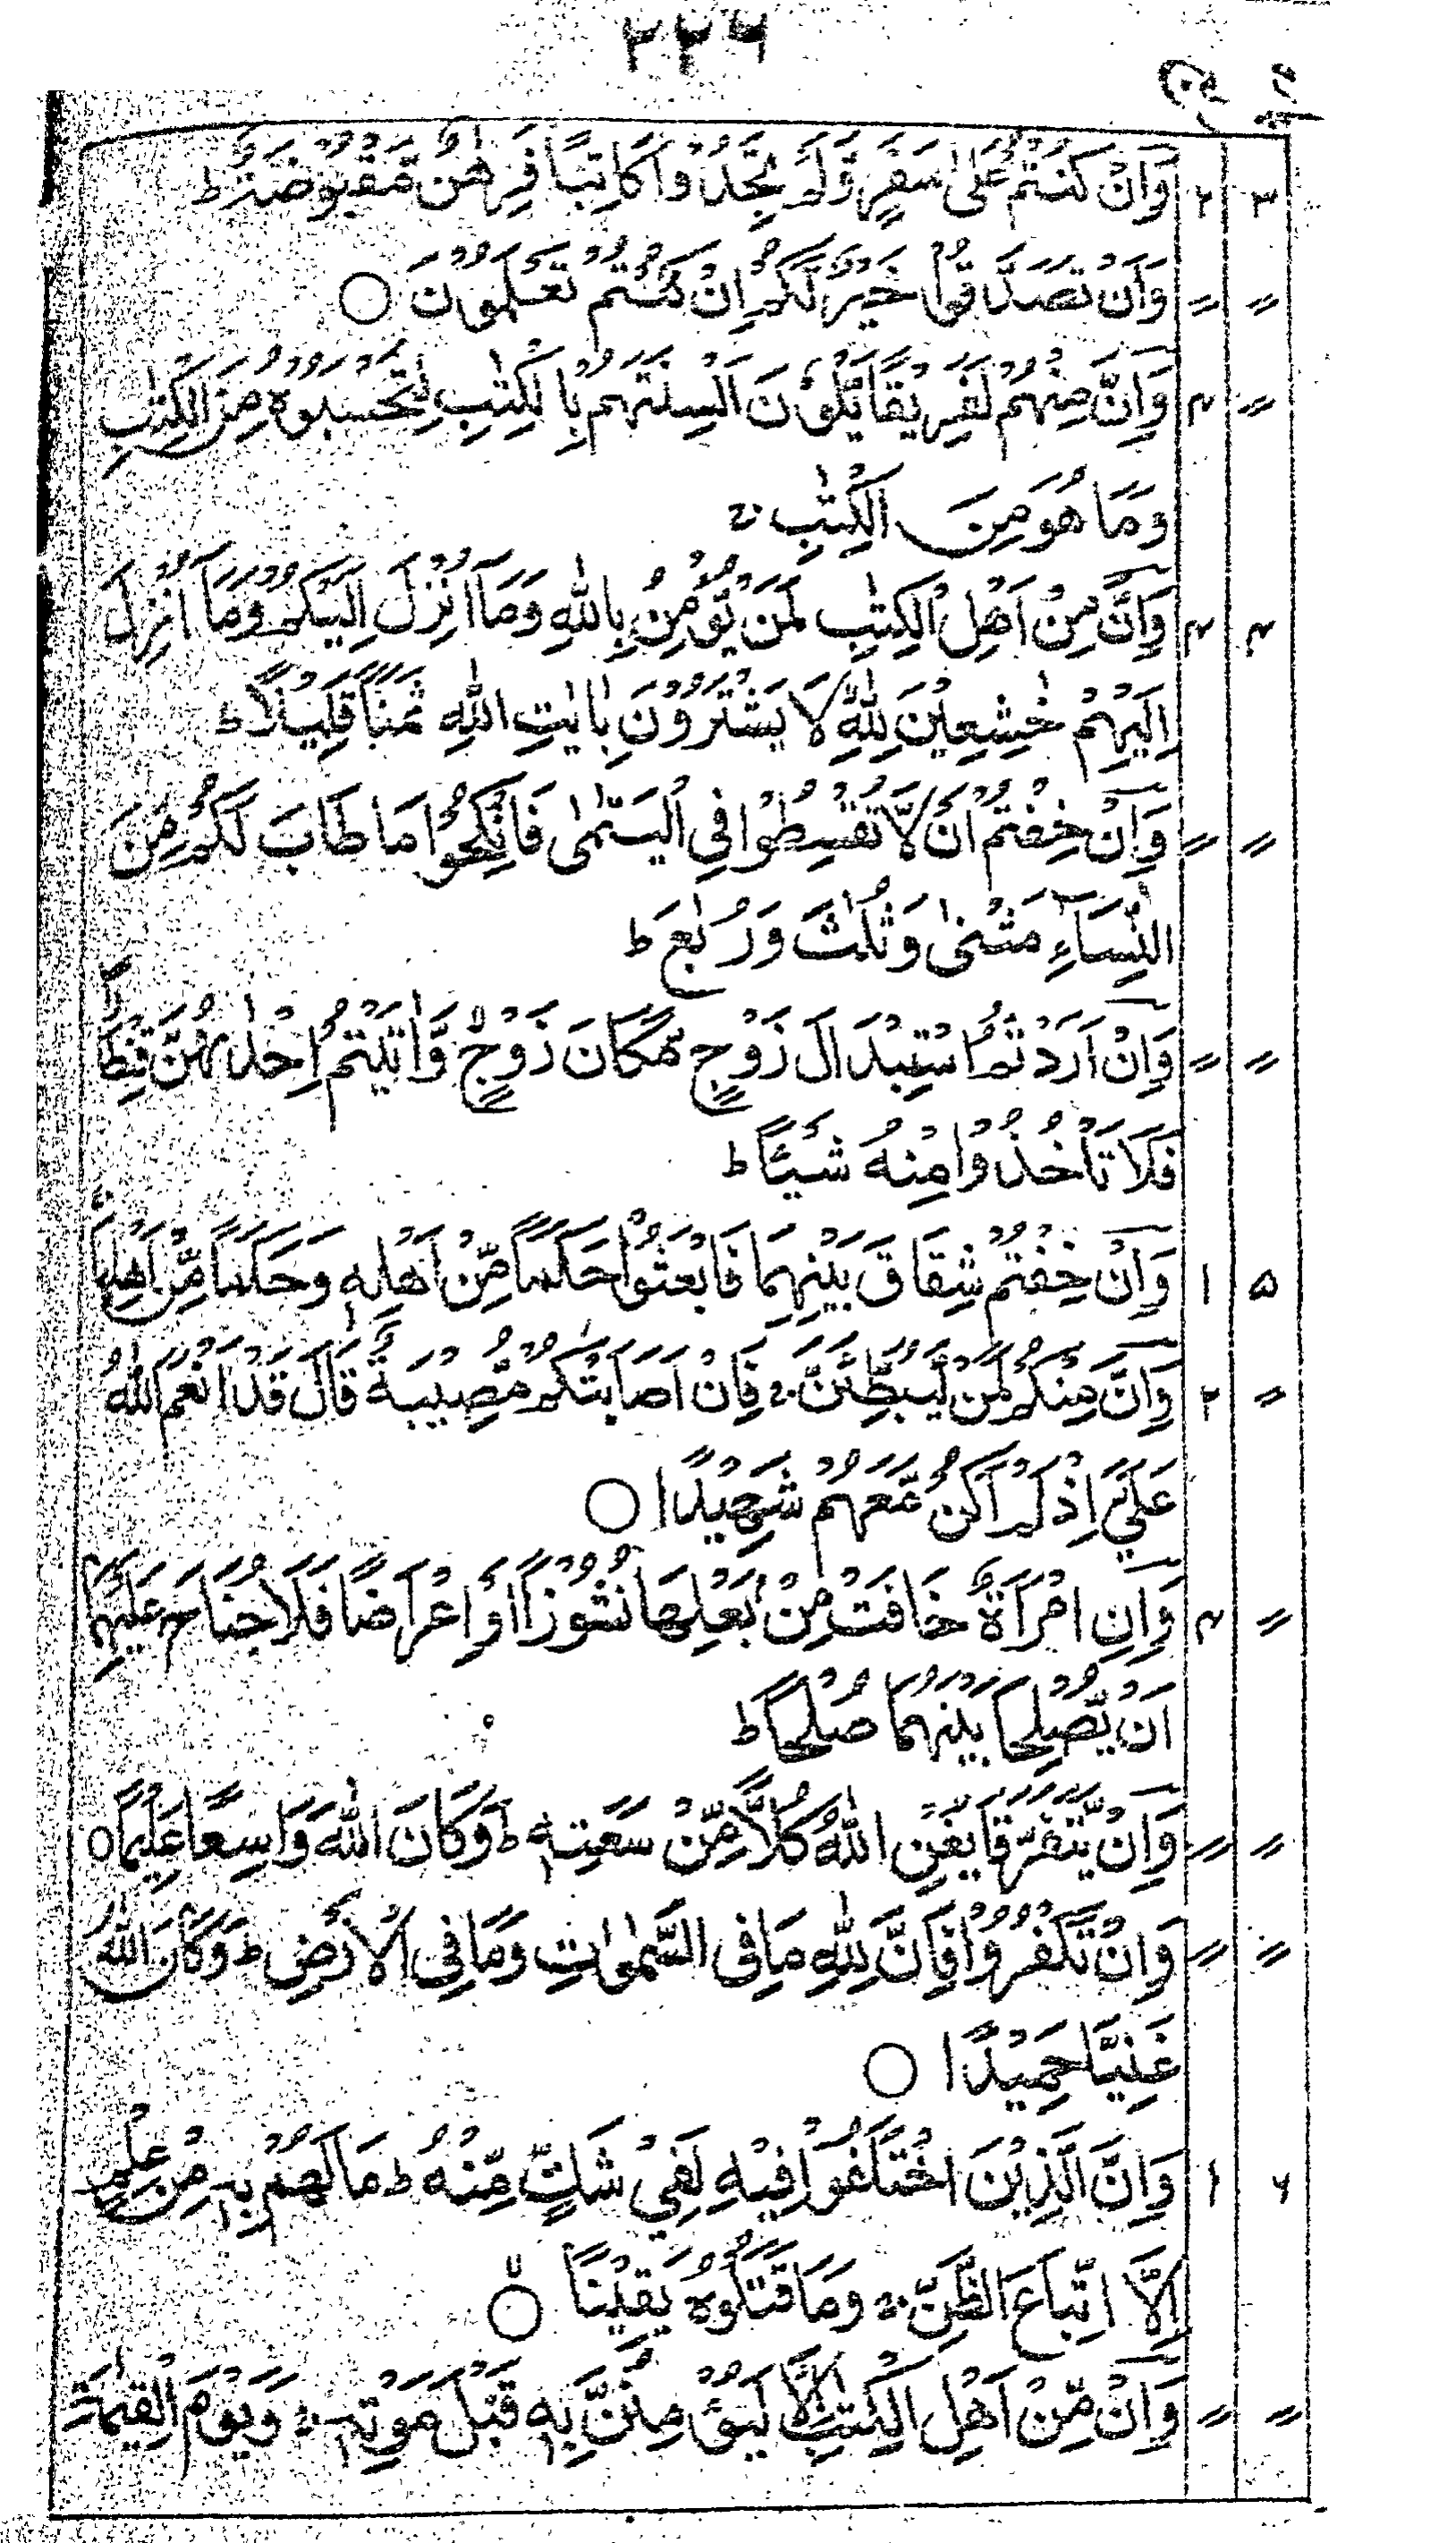 ۳۳۶
۳ ۲ وَاِنْ كُنْتُمْ عَلٰى سَفَرٍ وَّلَمْ تَجِدُوْا كَاتِبًا فَرِهٰنٌ مَّقْبُوْضَةٌ ؕ
〃 〃 وَاَنْ تَصَدَّقُوْا خَيْرٌ لَّكُمْ اِنْ كُنْتُمْ تَعْلَمُوْنَ ○
〃 ۴ وَاِنَّ مِنْهُمْ لَفَرِيْقًا يَّلْوٗنَ اَلْسِنَتَهُمْ بِالْكِتٰبِ لِتَحْسَبُوْهُ مِنَ الْكِتٰبِ
وَمَا هُوَ مِنَ الْكِتٰبِ ۚ
۴ ۴ وَاِنَّ مِنْ اَهْلِ الْكِتٰبِ لَمَنْ يُّؤْمِنُ بِاللّٰهِ وَمَآ اُنْزِلَ اِلَيْكُمْ وَمَآ اُنْزِلَ
اِلَيْهِمْ خٰشِعِيْنَ لِلّٰهِ لَا يَشْتَرُوْنَ بِاٰيٰتِ اللّٰهِ ثَمَنًا قَلِيْلًا ؕ
〃 〃 وَاِنْ خِفْتُمْ اَنْ لَّا تُقْسِطُوْا فِى الْيَتٰمٰى فَانْكِحُوْا مَا طَابَ لَكُمْ مِنَ
النِّسَآءِ مَثْنٰى وَثُلٰثَ وَرُبٰعَ ؕ
〃 〃 وَاِنْ اَرَدْتُمُ اسْتِبْدَالَ زَوْجٍ مَّكَانَ زَوْجٍ ۙ وَّاٰتَيْتُمْ اِحْدٰىهُنَّ قِنْطَارًا
فَلَا تَاْخُذُوْا مِنْهُ شَيْئًا ؕ
۵ ۱ وَاِنْ خِفْتُمْ شِقَاقَ بَيْنِهِمَا فَابْعَثُوْا حَكَمًا مِّنْ اَهْلِهٖ وَحَكَمًا مِّنْ اَهْلِهَا ۚ
〃 ۲ وَاِنَّ مِنْكُمْ لَمَنْ لَّيُبَطِّئَنَّ ۚ فَاِنْ اَصَابَتْكُمْ مُّصِيْبَةٌ قَالَ قَدْ اَنْعَمَ اللّٰهُ
عَلَيَّ اِذْ لَمْ اَكُنْ مَّعَهُمْ شَهِيْدًا ○
〃 ۴ وَاِنِ امْرَاَةٌ خَافَتْ مِنْ بَعْلِهَا نُشُوْزًا اَوْ اِعْرَاضًا فَلَا جُنَاحَ عَلَيْهِمَا
اَنْ يُّصْلِحَا بَيْنَهُمَا صُلْحًا ؕ
〃 〃 وَاِنْ يَّتَفَرَّقَا يُغْنِ اللّٰهُ كُلًّا مِّنْ سَعَتِهٖ ؕ وَكَانَ اللّٰهُ وَاسِعًا عَلِيْمًا ○
〃 〃 وَاِنْ تَكْفُرُوْا فَاِنَّ لِلّٰهِ مَا فِى السَّمٰوٰتِ وَمَا فِى الْاَرْضِ ؕ وَكَانَ اللّٰهُ
غَنِيًّا حَمِيْدًا ○
۶ ۱ وَاِنَّ الَّذِيْنَ اخْتَلَفُوْا فِيْهِ لَفِيْ شَكٍّ مِّنْهُ ؕ مَا لَهُمْ بِهٖ مِنْ عِلْمٍ
اِلَّا اتِّبَاعَ الظَّنِّ ۚ وَمَا قَتَلُوْهُ يَقِيْنًا ۙ ○
〃 〃 وَاِنْ مِّنْ اَهْلِ الْكِتٰبِ اِلَّا لَيُؤْمِنَنَّ بِهٖ قَبْلَ مَوْتِهٖ ۚ وَيَوْمَ الْقِيٰمَةِ